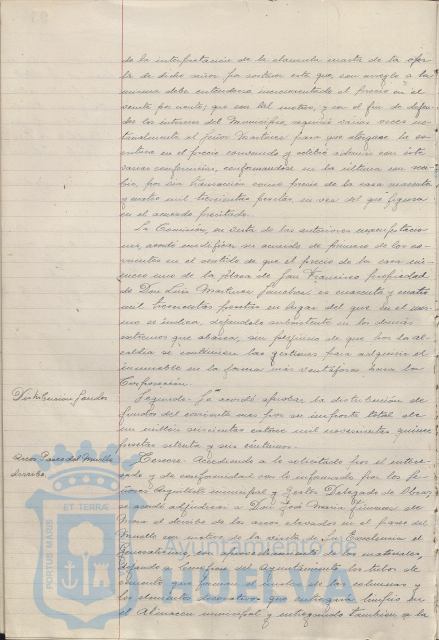 de la interpretación de la clausula cuarta de la ofer
ta de dicho señor por sostener este que, con arreglo a la
misma debe entenderse incrementado el precio en el
veinte por ciento; que con tal motivo, y con el fin de defen
der los intereses del Municipio, requirió varias veces no
tarialmente al Señor Martinez para que otorgase la es
critura en el precio convenido y celebró además con éste
varias conferencias, conformandose en la última con reci
bir, por via transacción como precio de la casa cuarenta
y cuatro mil trescientas pesetas en vez del que figura
en el acuerdo precitado.
La Comisión, en vista de las anteriores manifestacio
nes, acordó modificar su acuerdo de primero de los co
rrientes en el sentido de que el precio de la casa nú
mero uno de la plaza de San Francisco propiedad
de Don Luis Martinez Sanchez es cuarenta y cuatro
mil trescientas pesetas en lugar del que en el mis
mo se indica, dejandolo subsistente en los demás
extremos que abarca, sin perjuicio de que por la al
caldia se continuen las gestiones para adquirir el
inmueble en la forma más ventajosa para la
Corporación.
Distribucion fondos
Segundo. Se acordó aprobar la distribución de
fondos del corriente mes por su importe total de
un millón seiscientas catorce mil novecientas quince
pesetas setenta y seis céntimos.
Arcos Paseo del Muelle
derribo
Tercero. Accediendo a lo solicitado por el intere
sado y de conformidad con lo informado por los Se
ñores Arquitecto municipal y Gestor Delegado de Obras,
se acordó adjudicar a Don José Maria Jimenez de
Mora el derribo de los arcos elevados en el paseo del
Muelle con motivo de la visita de Su Excelencia el
Generalisimo, con aprovechamiento de sus materiales,
dejando a beneficio del Ayuntamiento los tubos de
cemento que forman el nucleo de las columnas y
los elementos decorativos que entregará limpios en
el Almacen municipal y entregando tambien a la
ET TERRÆ
PORTUS MARIS
CUSTODIA
Ayuntamiento de
HUELVA